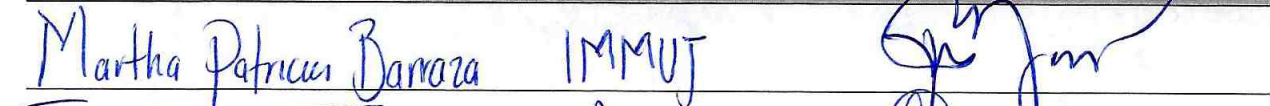 Martha Patricia Barraza IMMUJ